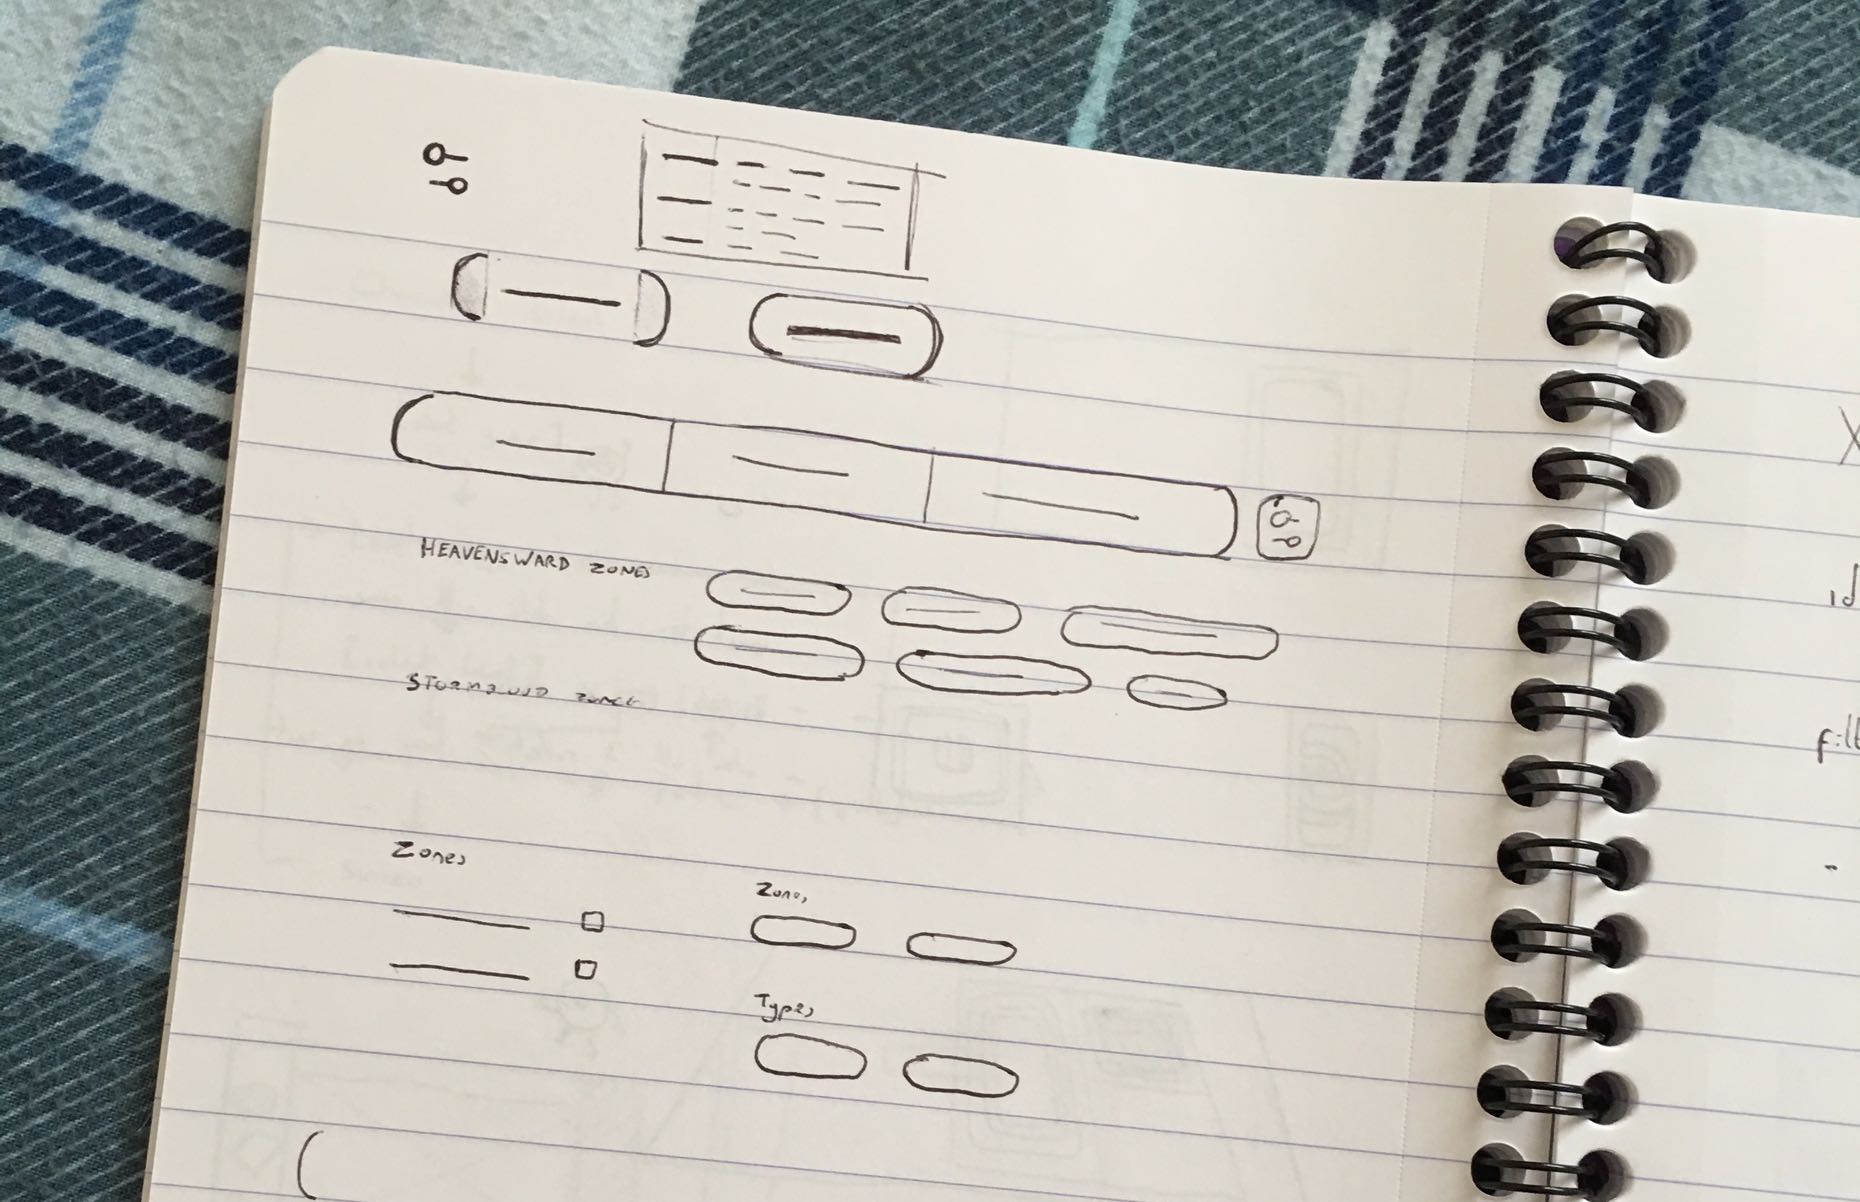 HEAVENSWARD ZONES
STORMBLOOD ZONES
Zones
Zones
Types
X
id
filt
-